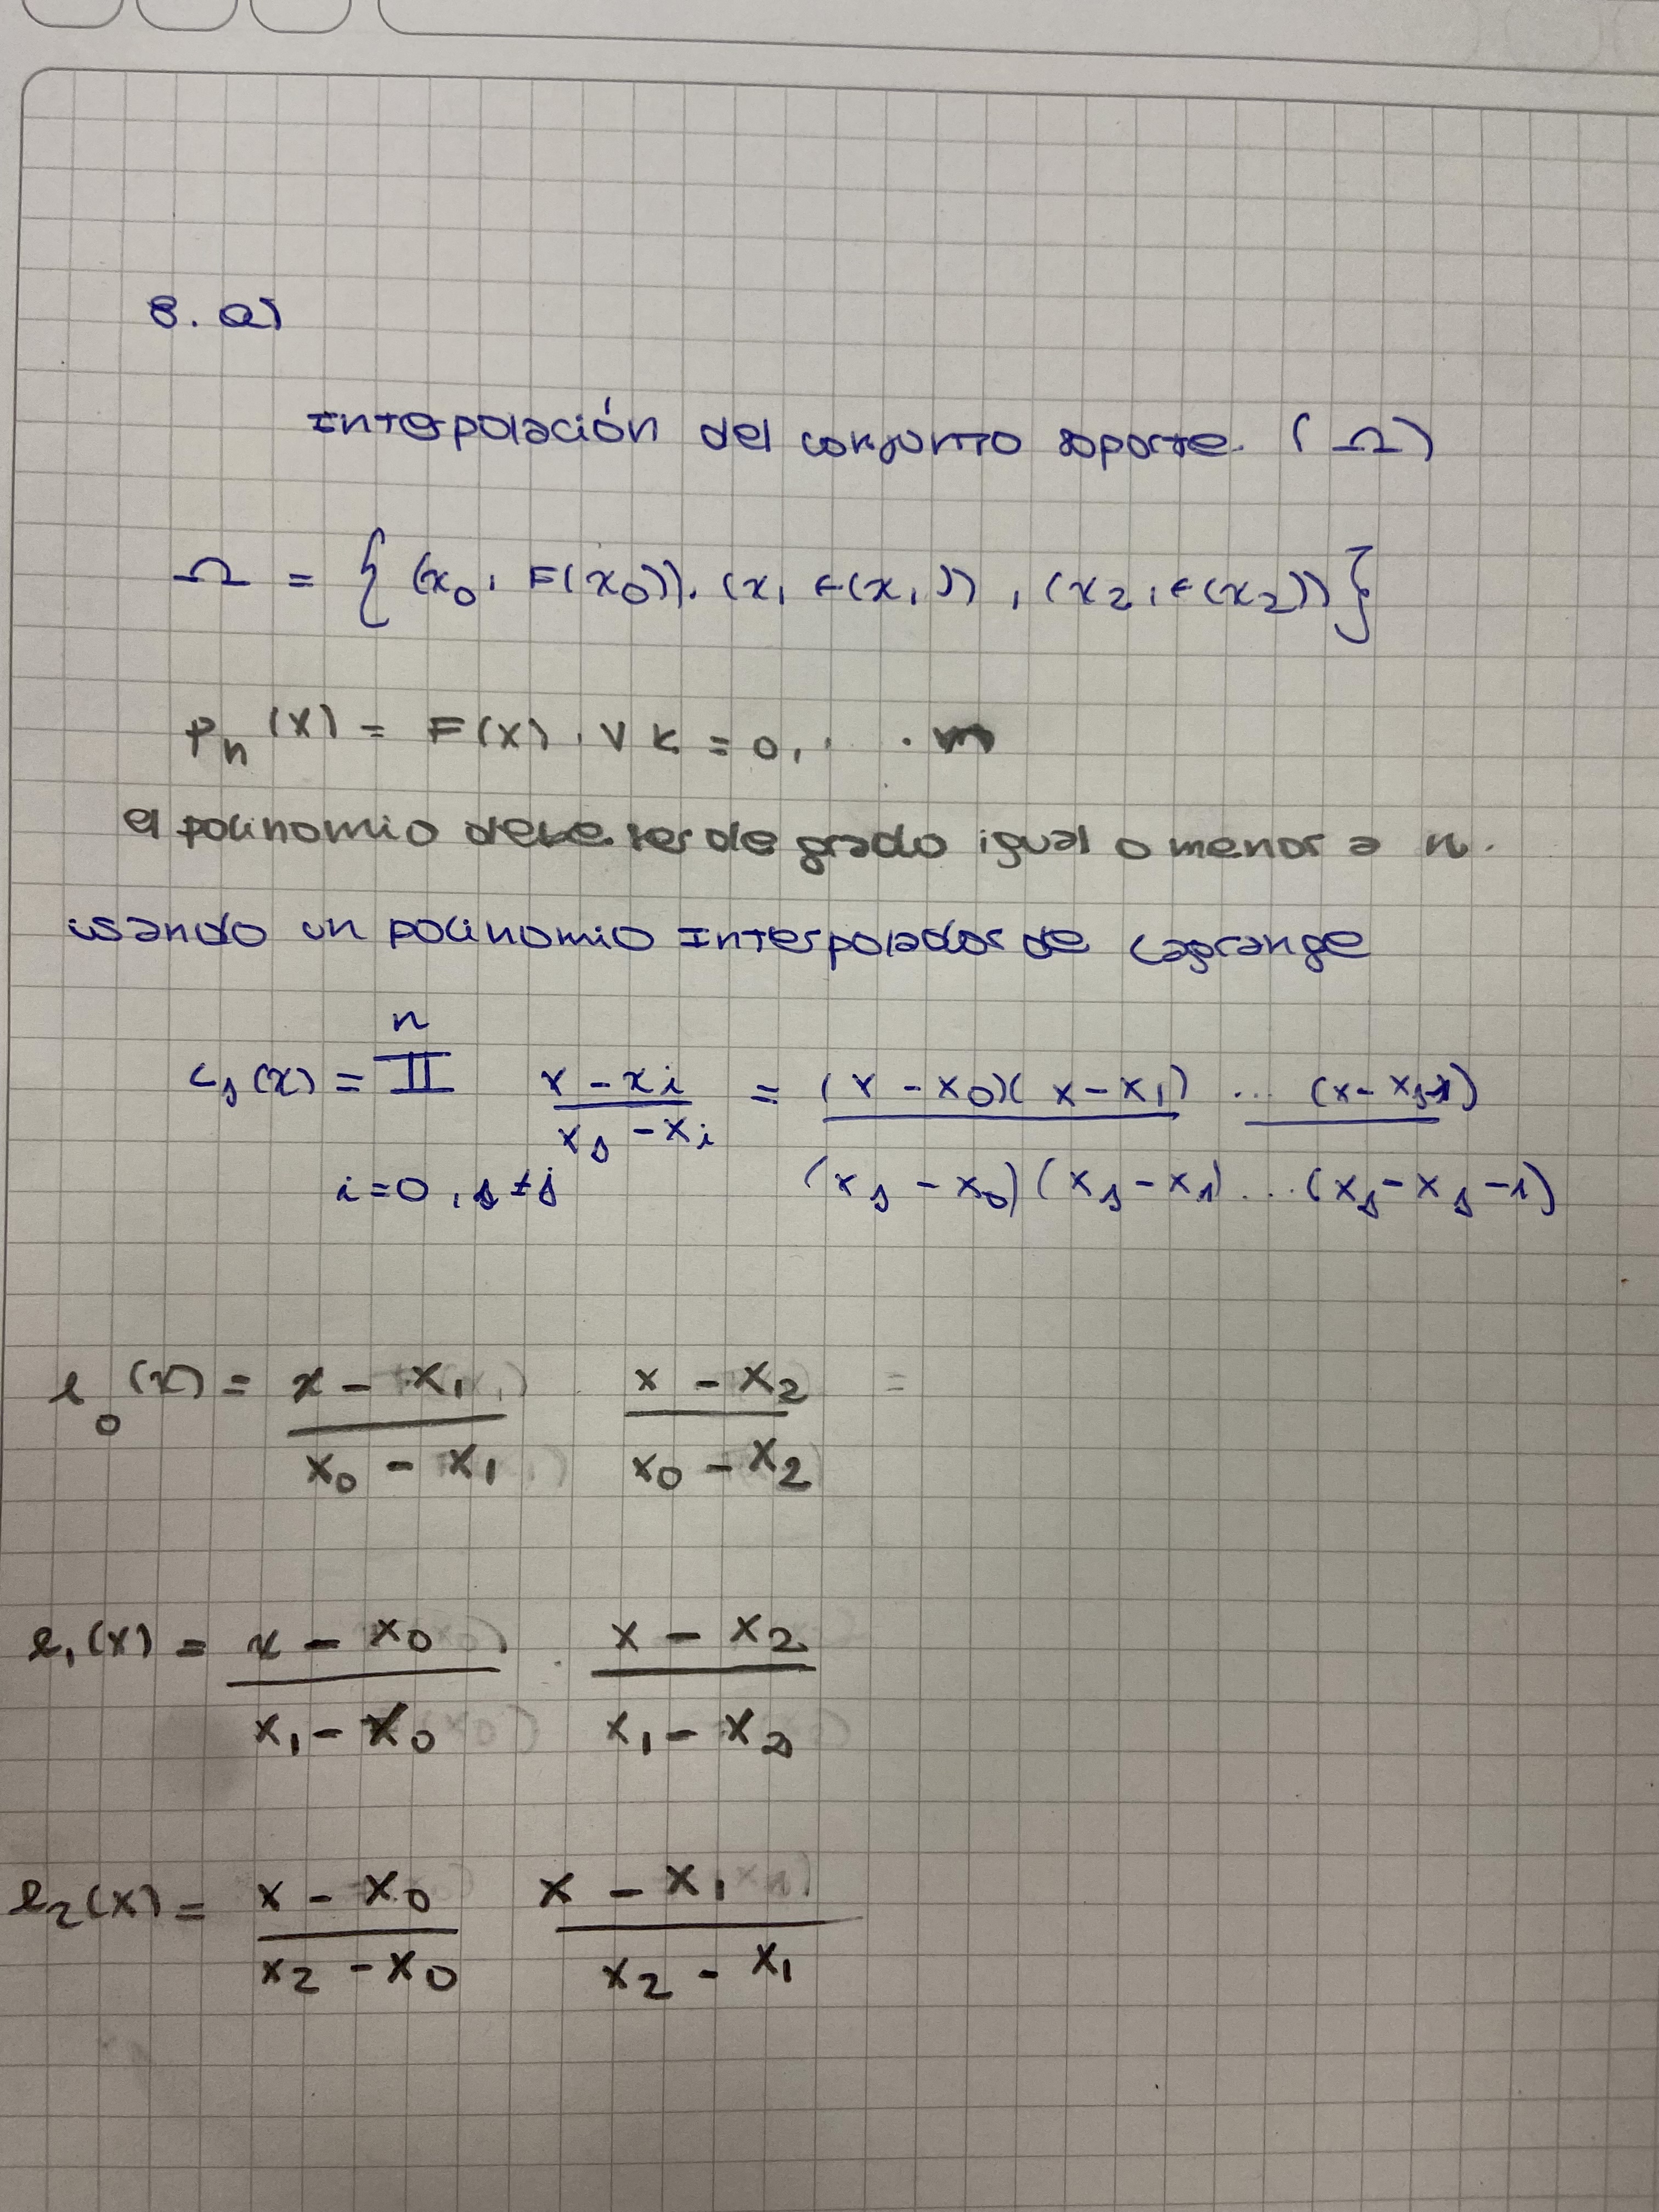 8. a)
Interpolación del conjunto soporte. (Ω)
Ω = { (x₀, F(x₀)), (x₁ F(x₁)), (x₂, F(x₂)) }
Pₙ(x) = F(x), ∀ k = 0, . . n
el polinomio debe ser de grado igual o menor a n.
usando un polinomio Interpolador de Lagrange
n
Lⱼ(x) = Π (x - xᵢ)/(xⱼ - xᵢ) = (x - x₀)(x - x₁) ... (x - xⱼ-1) / (xⱼ - x₀)(xⱼ - x₁) ... (xⱼ - xⱼ - 1)
i=0, j≠j
l₀(x) = (x - x₁)/(x₀ - x₁) (x - x₂)/(x₀ - x₂) =
l₁(x) = (x - x₀)/(x₁ - x₀) . (x - x₂)/(x₁ - x₂)
l₂(x) = (x - x₀)/(x₂ - x₀) (x - x₁)/(x₂ - x₁)